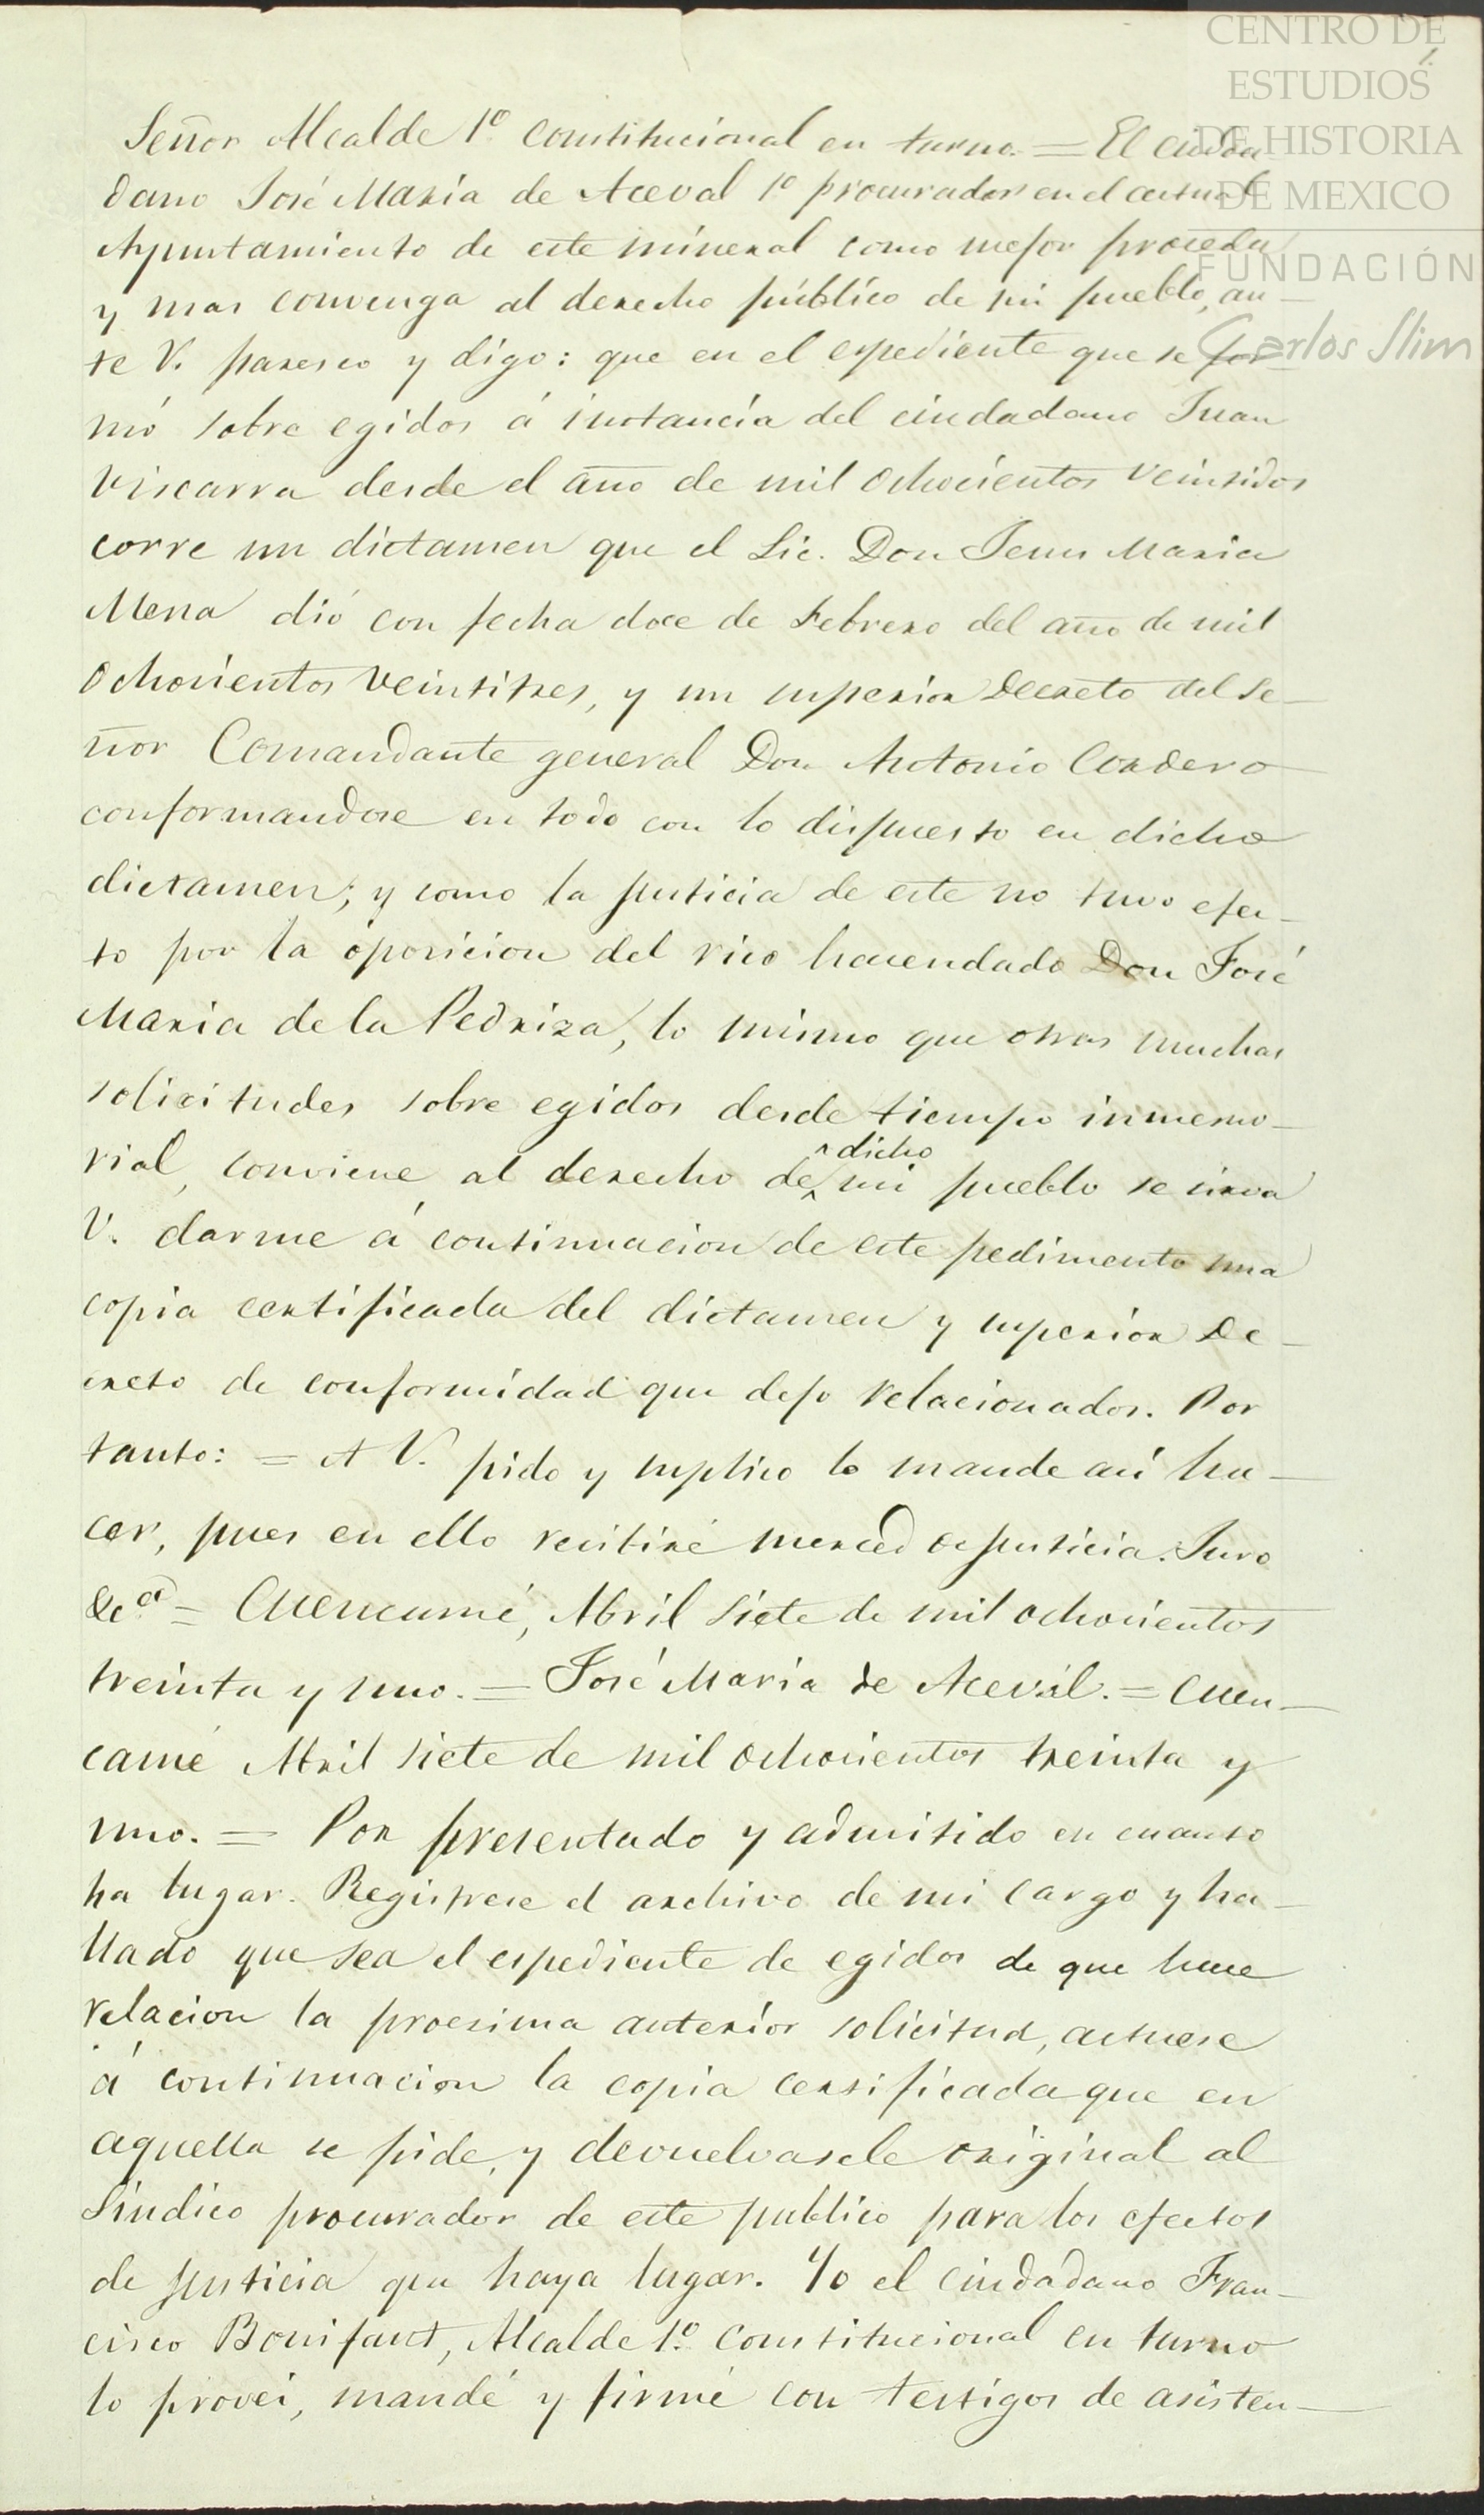 CENTRO DE
ESTUDIOS
DE HISTORIA
DE MEXICO
FUNDACIÓN
Carlos Slim
1.
Señor Alcalde 1º constitucional en turno. = El ciuda
dano José Maria de Aceval 1º procurador en el actual
Ayuntamiento de este mineral como mejor proceda
y mas convenga al derecho público de mi pueblo, an-
te V. paresco y digo: que en el espediente que se for
mó sobre egidos á instancia del ciudadano Juan
Viscarra desde el año de mil ochocientos veintidos
corre un dictamen que el Lic. Don Jesus Maria
Mena dió con fecha doce de Febrero del año de mil
ochocientos veintitres, y un superior Decreto del Se-
ñor Comandante general Don Antonio Cordero
conformandose en todo con lo dispuesto en dicho
dictamen; y como la justicia de este no tuvo efec-
to por la oposicion del rico hacendado Don José
Maria de la Pedriza, lo mismo que otras muchas
solicitudes sobre egidos desde tiempo inmemo-
rial, conviene al derecho de dicho mi pueblo se sirva
V. darme á continuacion de este pedimento una
copia certificada del dictamen y superior De-
creto de conformidad que dejo relacionados. Por
tanto: = A V. pido y suplico lo mande asi ha-
cer, pues en ello recibiré merced de justicia. Juro
&cª = Cuencamé, Abril siete de mil ochocientos
treinta y uno. = José Maria de Aceval. = Cuen-
camé Abril siete de mil ochocientos treinta y
uno. = Por presentado y admitido en cuanto
ha lugar. Registrese el archivo de mi cargo y ha-
llado que sea el espediente de egidos de que hace
relacion la procsima anterior solicitud, actuese
á continuacion la copia certificada que en
aquella se pide, y devuelvasele original al
Sindico procurador de este publico para los efectos
de justicia que haya lugar. Yo el ciudadano Fran-
cisco Bonifant, Alcalde 1º constitucional en turno
lo proveí, mandé y firmé con testigos de asisten-